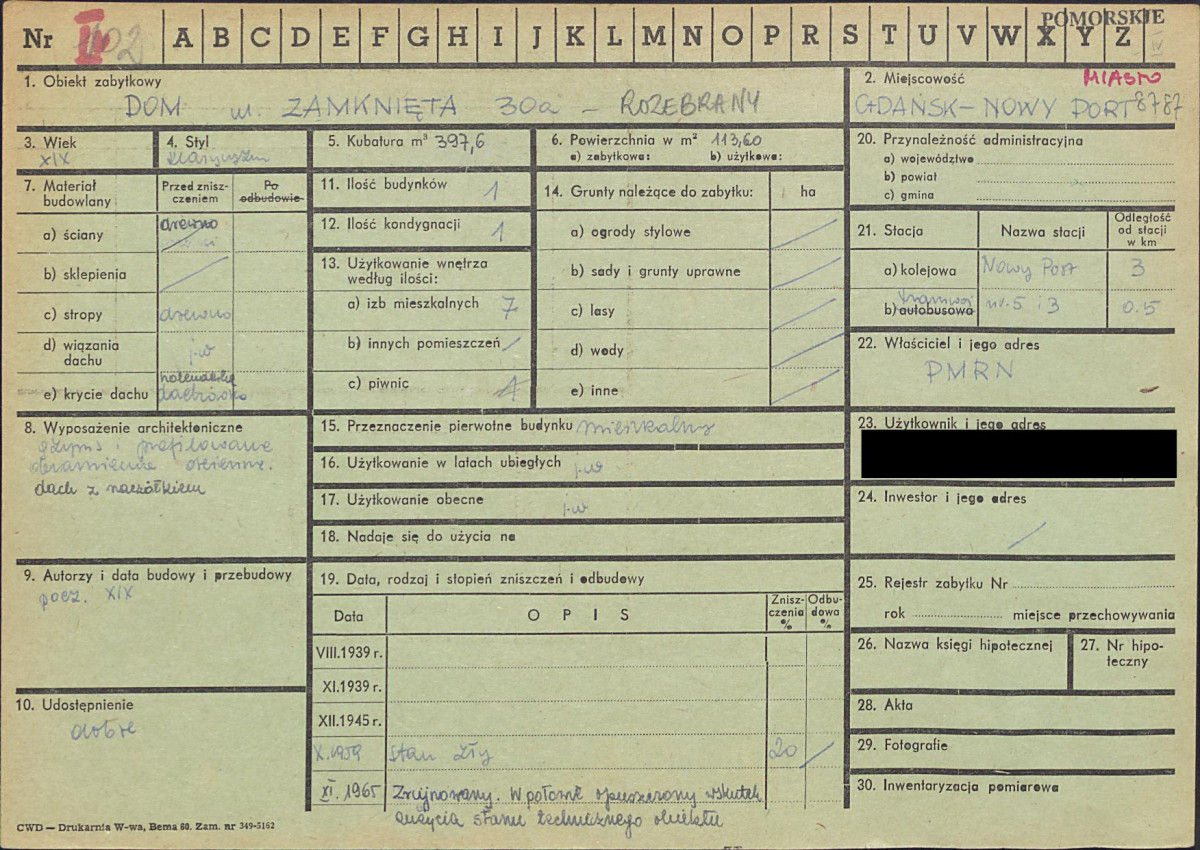 Nr II 102 A B C D E F G H I J K L M N O P R S T U V W X Y Z
POMORSKIE
1. Obiekt zabytkowy
DOM ul. ZAMKNIĘTA 30a – ROZEBRANY
2. Miejscowość
MIASTO
GDAŃSK – NOWY PORT 8787
3. Wiek
XIX
4. Styl
5. Kubatura m³ 397,6
6. Powierzchnia w m² 113,60
a) zabytkowa: b) użytkowa:
20. Przynależność administracyjna
a) województwo
b) powiat
c) gmina
7. Materiał budowlany
Przed znisz-
czeniem
Po
odbudowie
a) ściany drewno
b) sklepienia /
c) stropy drewno
d) wiązania
dachu j.w
e) krycie dachu dachówka
11. Ilość budynków 1
12. Ilość kondygnacji 1
13. Użytkowanie wnętrza
według ilości:
a) izb mieszkalnych 7
b) innych pomieszczeń /
c) piwnic 1
14. Grunty należące do zabytku: ha
a) ogrody stylowe /
b) sady i grunty uprawne /
c) lasy /
d) wody /
e) inne /
21. Stacja
Nazwa stacji
Odległość
od stacji
w km
a) kolejowa Nowy Port 3
tramwaj
b) autobusowa nr. 5 i 3 0.5
22. Właściciel i jego adres
PMRN
8. Wyposażenie architektoniczne
gzyms i profilowane
obramienia okienne.
dach z naczółkiem
15. Przeznaczenie pierwotne budynku mieszkalny
16. Użytkowanie w latach ubiegłych j.w
17. Użytkowanie obecne j.w
18. Nadaje się do użycia na
23. Użytkownik i jego adres
24. Inwestor i jego adres
/
9. Autorzy i data budowy i przebudowy
pocz. XIX
10. Udostępnienie
dobre
19. Data, rodzaj i stopień zniszczeń i odbudowy
Data
OPIS
Znisz-
czenia
%
Odbu-
dowa
%
VIII.1939 r.
XI.1939 r.
XII.1945 r.
X.1959 stan zły 20 /
XI. 1965 Zrujnowany. W połowie opuszczony wskutek
zużycia stanu technicznego obiektu
25. Rejestr zabytku Nr
rok miejsce przechowywania
26. Nazwa księgi hipotecznej
27. Nr hipo-
teczny
28. Akta
29. Fotografie
30. Inwentaryzacja pomiarowa
CWD — Drukarnia W-wa, Bema 60. Zam. nr 349-5162